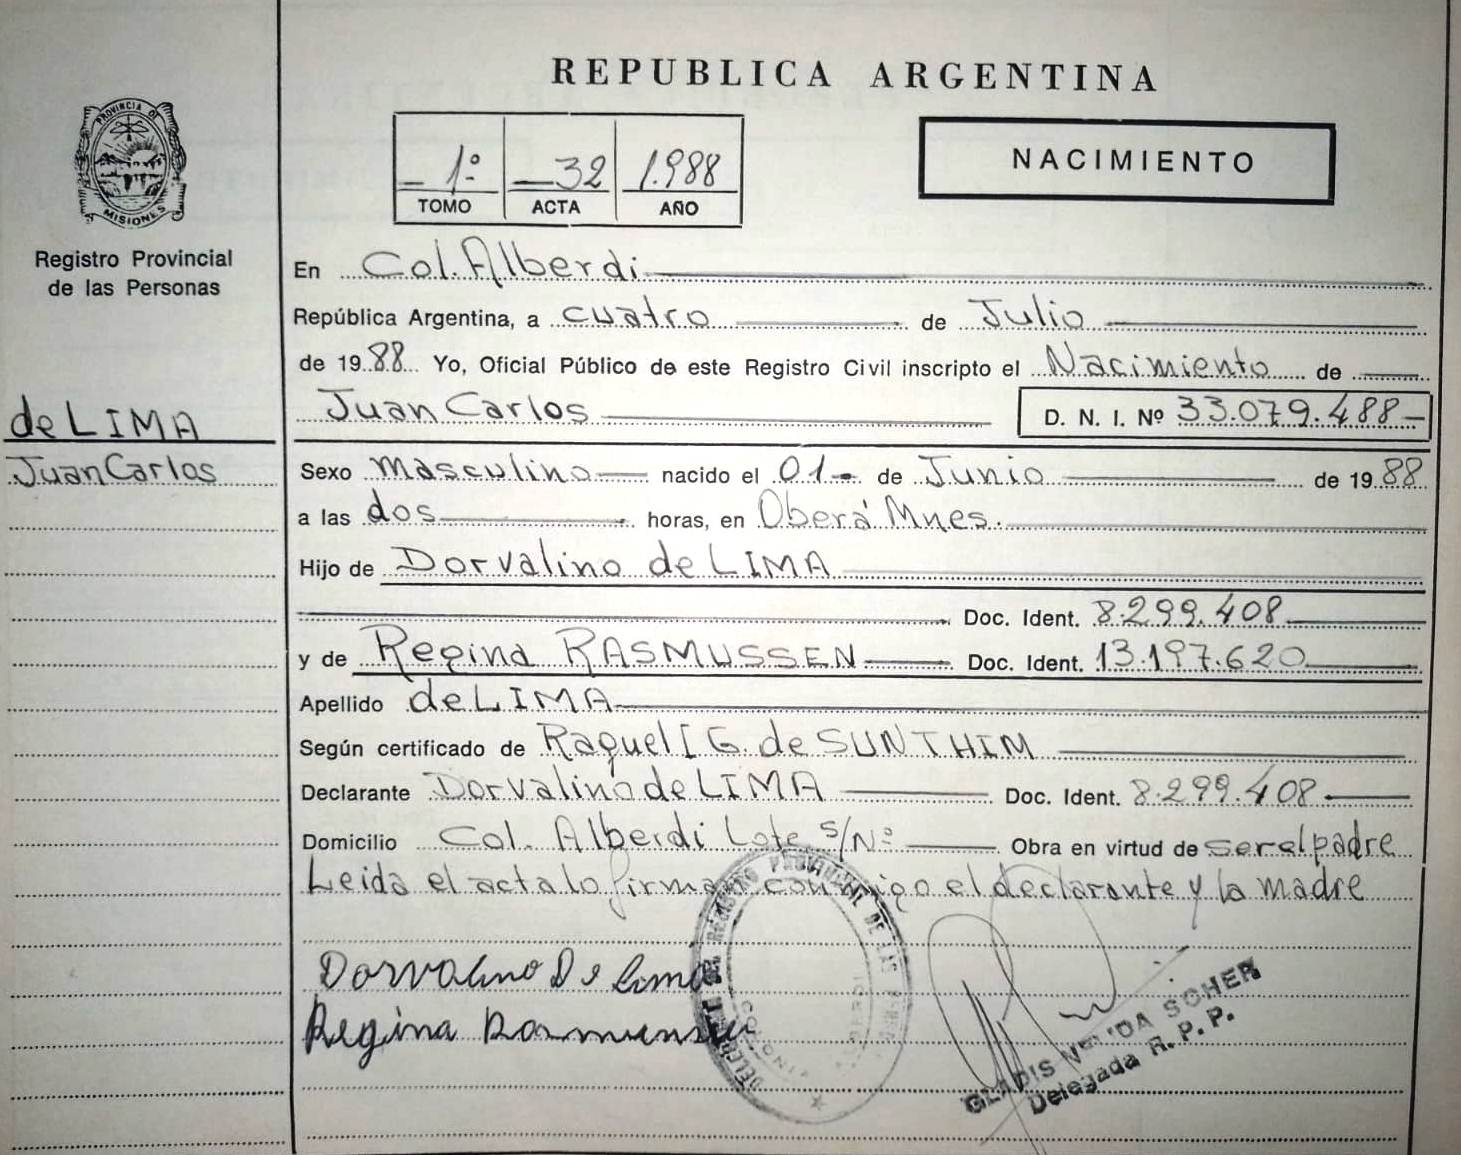 REPUBLICA ARGENTINA
PROVINCIA DE
MISIONES
Registro Provincial
de las Personas
1º 32 1.988
TOMO ACTA AÑO
NACIMIENTO
En Col. Alberdi
República Argentina, a cuatro de Julio
de 1988 Yo, Oficial Público de este Registro Civil inscripto el Nacimiento de
Juan Carlos D. N. I. Nº 33.079.488
de LIMA
Juan Carlos
Sexo masculino nacido el 01 de Junio de 1988
a las dos horas, en Oberá Mnes.
Hijo de Dorvalino de LIMA
Doc. Ident. 8.299.408
y de Regina RASMUSSEN Doc. Ident. 13.197.620
Apellido de LIMA
Según certificado de Raquel I G. de SUNTHIM
Declarante Dorvalino de LIMA Doc. Ident. 8.299.408
Domicilio Col. Alberdi Lote s/Nº Obra en virtud de ser el padre
Leida el acta lo firman conmigo el declarante y la madre
Dorvalino De Lima
Regina
REGISTRO PROVINCIAL DE LAS
GLADIS NELIDA SCHER
Delegada R. P. P.